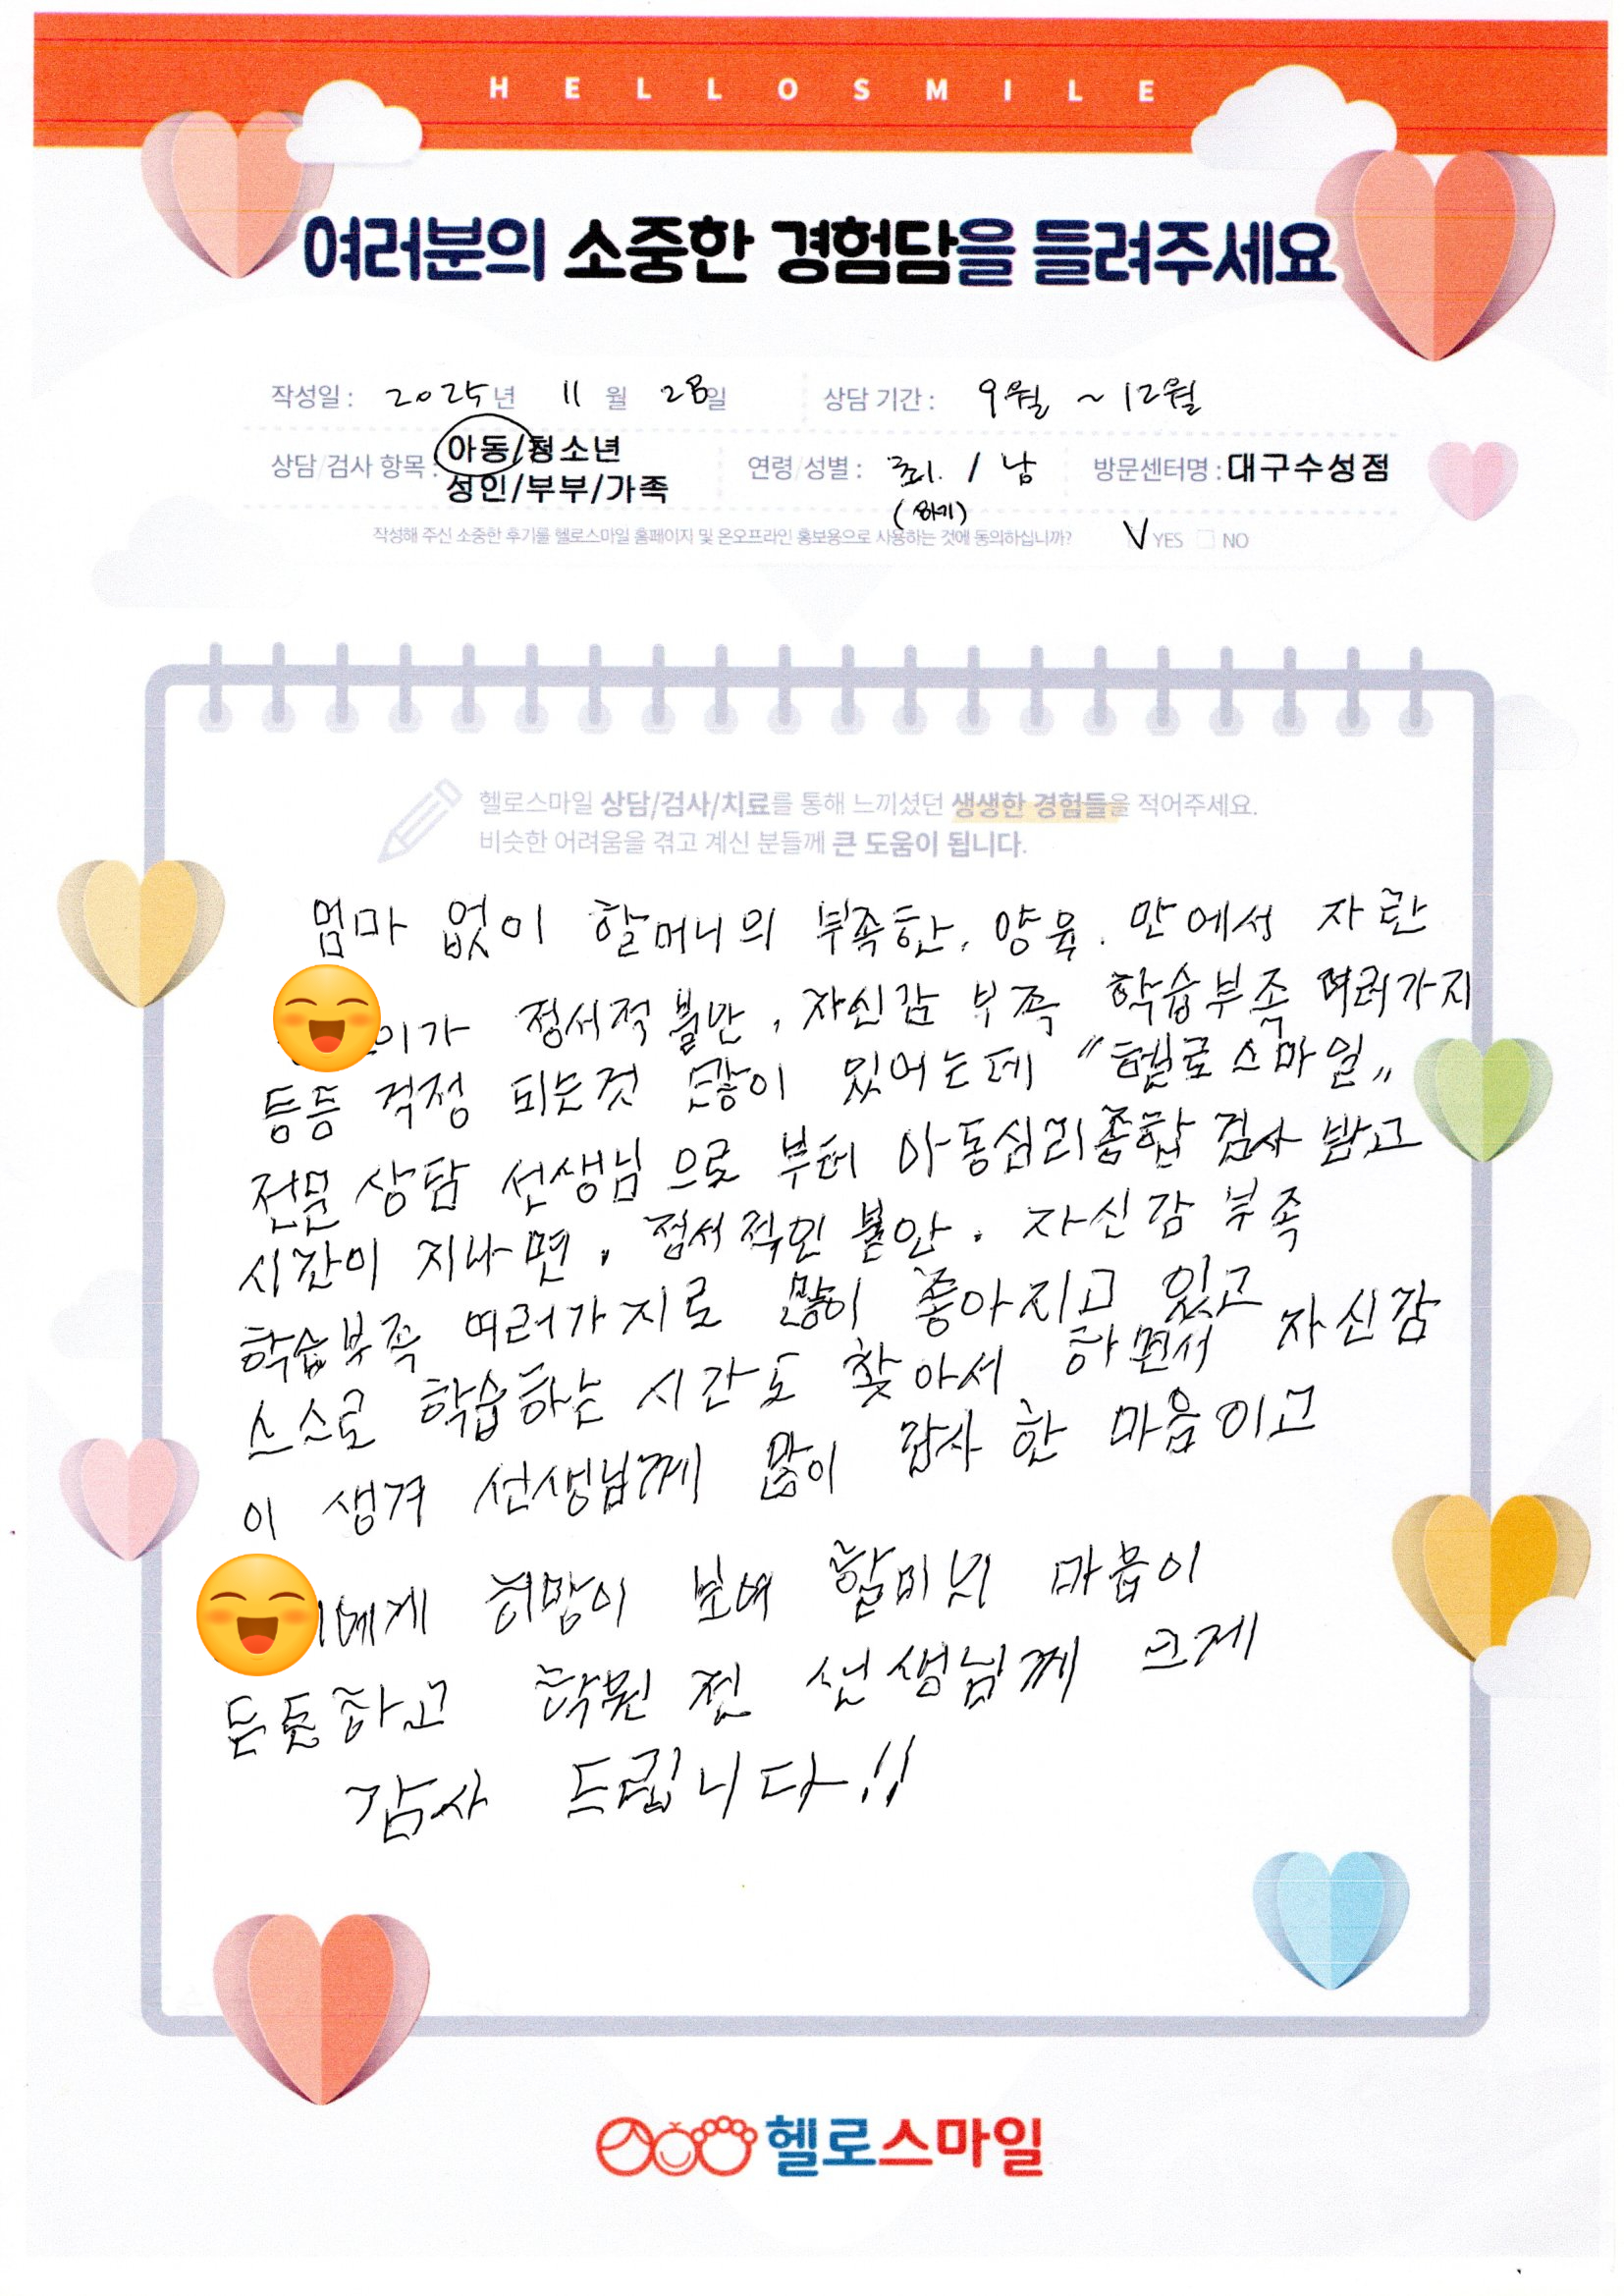 HELLOSMILE
여러분의 소중한 경험담을 들려주세요
작성일 : 2025년 11월 28일 상담 기간 : 9월 ~ 12월
상담/검사 항목 : 아동/청소년 연령/성별 : 초1. / 남 방문센터명 : 대구수성점
성인/부부/가족
작성해 주신 소중한 후기를 헬로스마일 홈페이지 및 온오프라인 홍보용으로 사용하는 것에 동의하십니까? V YES NO
헬로스마일 상담/검사/치료를 통해 느끼셨던 생생한 경험들을 적어주세요.
비슷한 어려움을 겪고 계신 분들께 큰 도움이 됩니다.
엄마 없이 할머니의 부족한, 양육. 만에서 자란
이가 정서적 불안, 자신감 부족 학습부족 여러가지
등등 걱정 되는것 많이 있어는데 "헬로스마일"
전문 상담 선생님 으로 부터 아동심리종합 검사 받고
시간이 지나면, 정서적인 불안. 자신감 부족
학습부족 여러가지로 많이 좋아지고 있고
스스로 학습하는 시간도 찾아서 하면서 자신감
이 생겨 선생님께 많이 감사 한 마음이고
에게 희망이 보여 할미늬 마음이
든든하고 선생님께 크게
감사 드립니다!!
헬로스마일